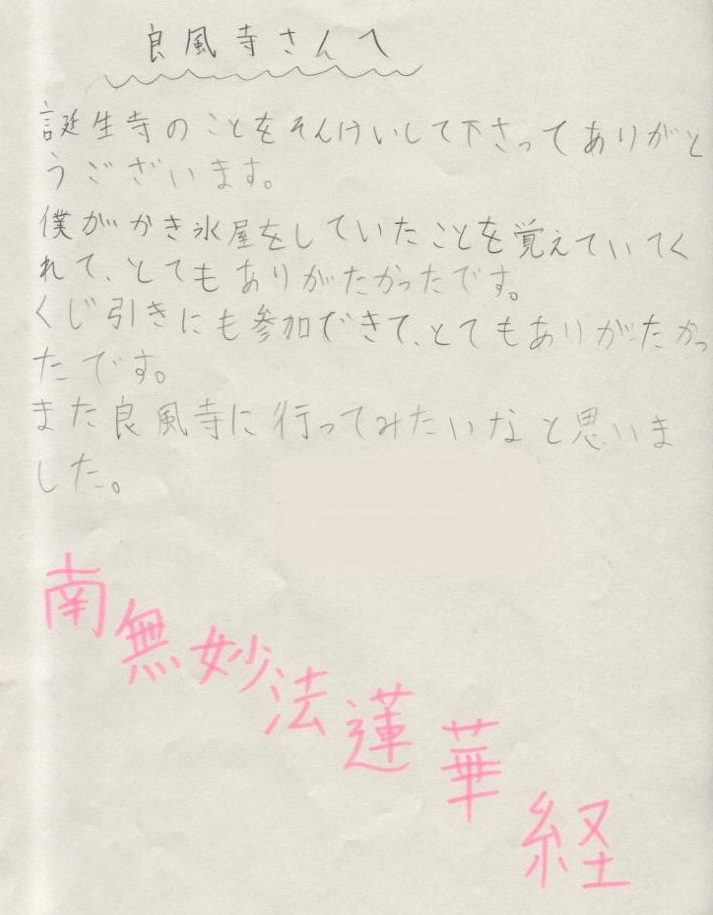 良風寺さんへ
誕生寺のことをそんけいして下さってありがと
うございます。
僕がかき氷屋をしていたことを覚えていてく
れて、とてもありがたかったです。
くじ引きにも参加できて、とてもありがたかっ
たです。
また良風寺に行ってみたいなと思いま
した。
南無妙法蓮華経